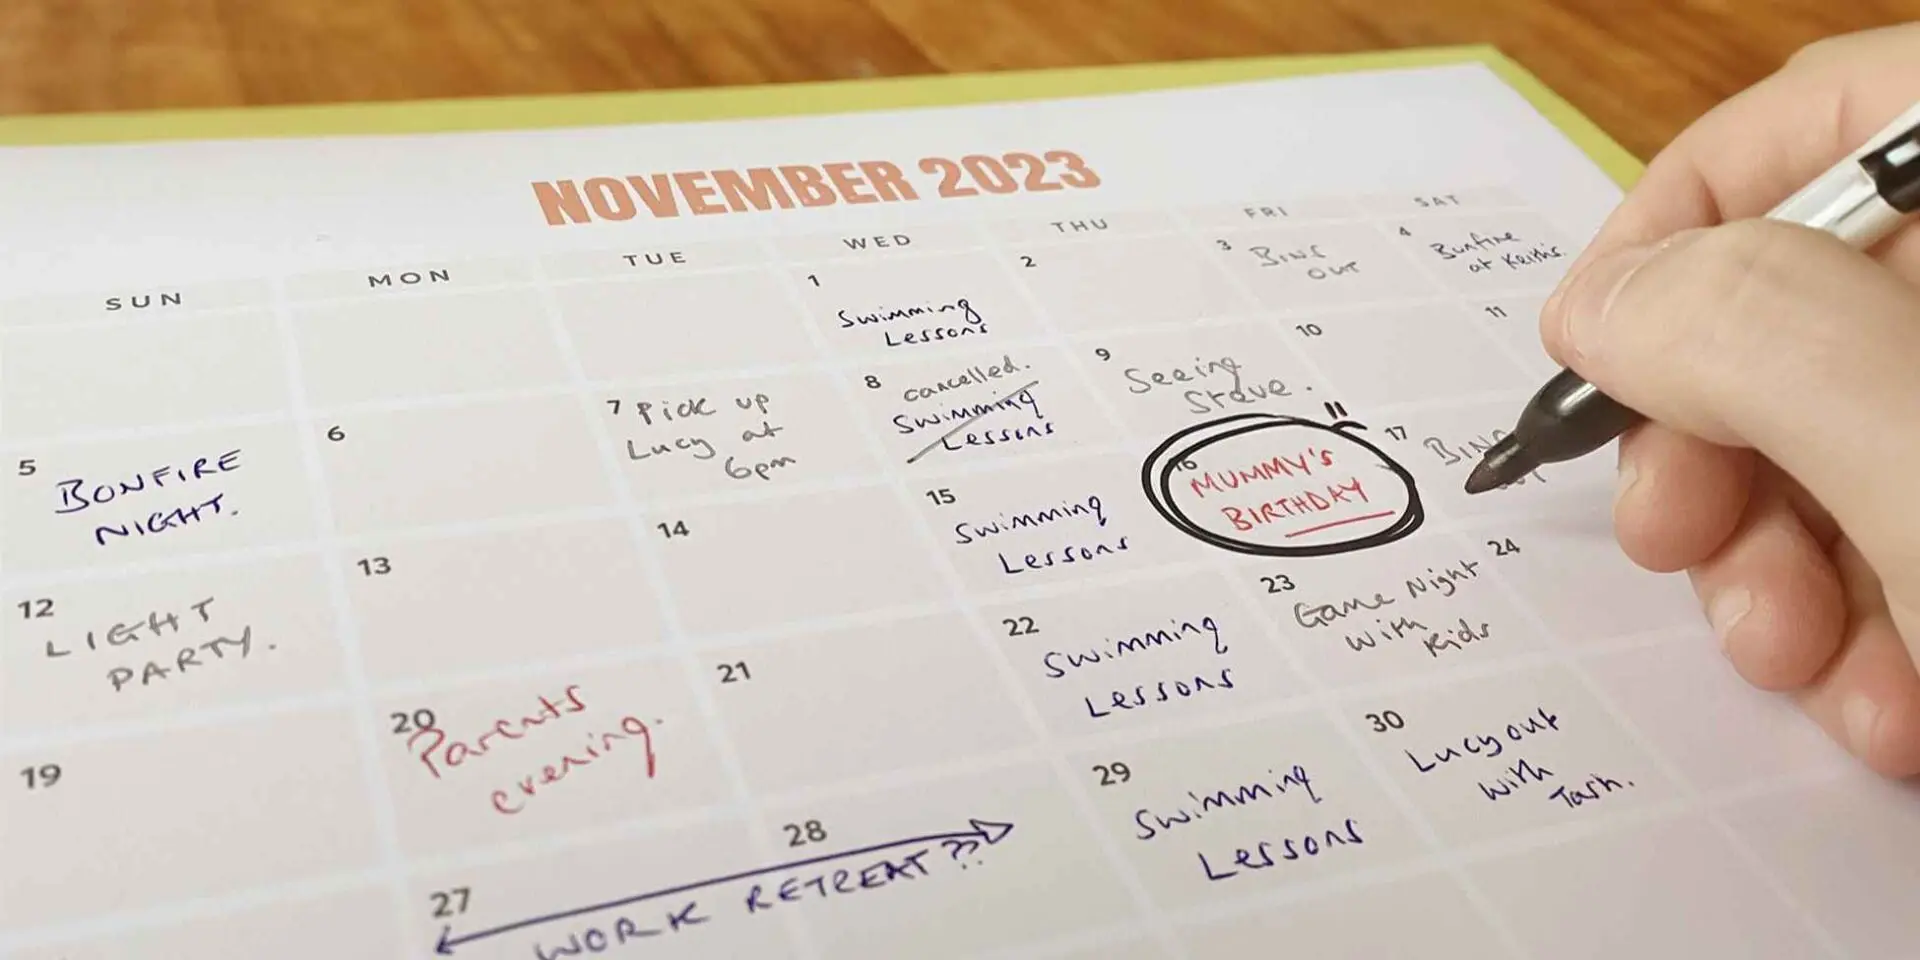 NOVEMBER 2023
SUN MON TUE WED THU FRI SAT
1
Swimming
Lessons
2
3
BINS
OUT
4
Bonfire
at Keith's.
5
BONFIRE
NIGHT.
6
7
Pick up
Lucy at
6pm
8
cancelled.
Swimming
Lessons
9
Seeing
Steve.
10
11
12
LIGHT
PARTY.
13
14
15
Swimming
Lessons
16
MUMMY'S
BIRTHDAY
17
19
20
Parents
evening.
21
22
Swimming
Lessons
23
Game Night
with
Kids
24
27
28
WORK RETREAT??
29
Swimming
Lessons
30
Lucy out
with
Tash.